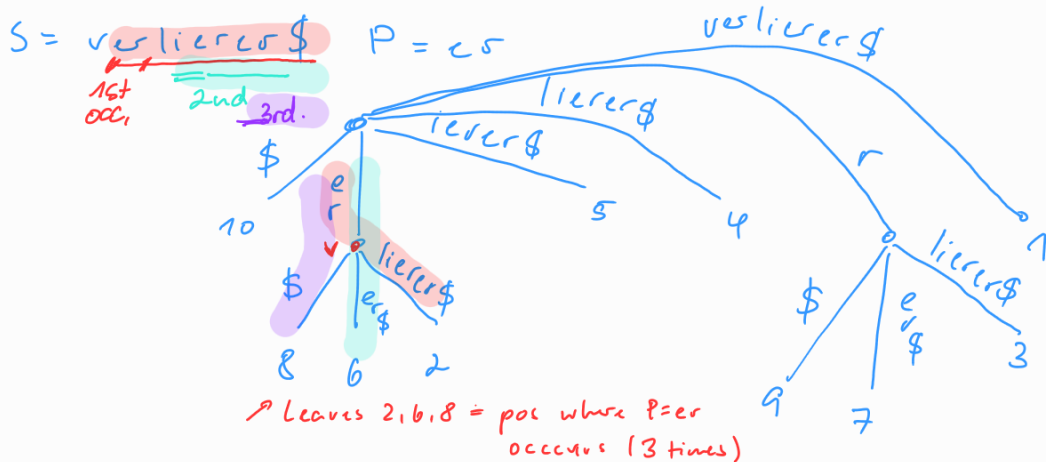 S = verlierer$ P = er
1st occ.
2nd
3rd.
verlierer$
lierer$
ierer$
r
$
er
10
5
4
1
$
er$
lierer$
8
6
2
$
er$
lierer$
9
7
3
↗ Leaves 2,6,8 = pos where P=er
occcurs (3 times)